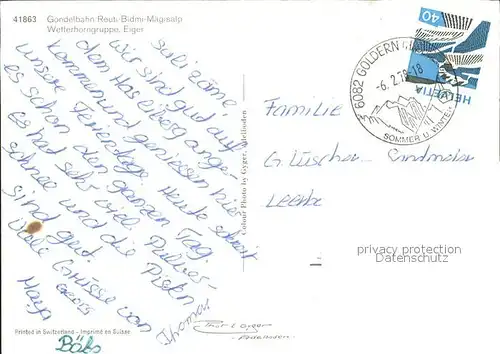 41863 Gondelbahn Reuti-Bidmi-Mägisalp
Wetterhorngruppe, Eiger
Sali zäme
wir sind gut auf
dem Hasliberg ange-
kommen und geniessen hier
unsere Ferientage. Heute scheint
es schon den ganzen Tag
es hat sehr viel Pulver-
schnee und die Pisten
sind gut.
Viele Grüsse von
Thomas
Bäbs
Printed in Switzerland - Imprimé en Suisse
Colour Photo by Gyger, Adelboden
6082 GOLDERN
-6.2.
18
SOMMER U. WINTER
HELVETIA
40
Familie
G. Lüscher
privacy protection
Gyger
Adelboden